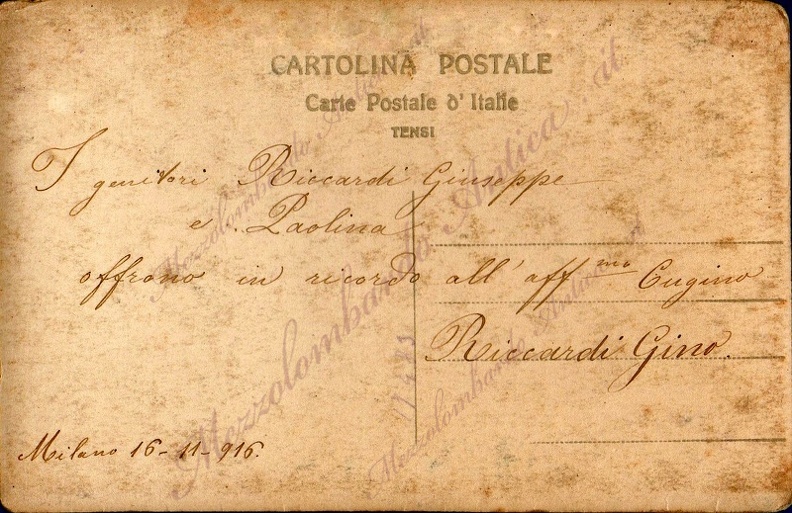 CARTOLINA POSTALE
Carte Postale d'Italie
TENSI
I genitori Riccardi Giuseppe
e Paolina
offrono in ricordo all'aff.mo Cugino
Riccardi Gino.
Milano 16-11-916.
Mezzolombardo Antica.it
Mezzolombardo Antica.it
Mezzolombardo Antica.it